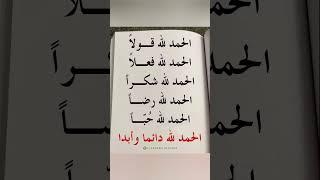 الحمد لله قـــولاً
الحمد لله فعـــلاً
الحمد لله شكـــراً
الحمد لله رضـــاً
الحمد لله حُبّـــاً
الحمد لله دائما وأبدا